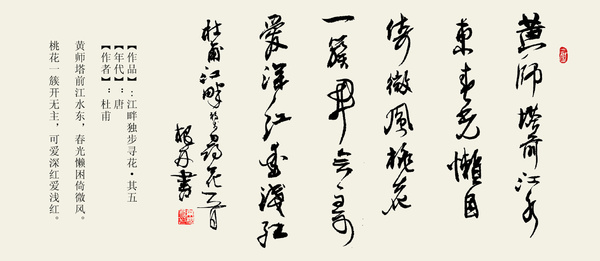 黄师塔前江水
東春光懒困
倚微风桃花
一簇开无主可
爱深红爱浅红
杜甫江畔寻花
書
【作品】:江畔独步寻花·其五
【年代】:唐
【作者】:杜甫
黄师塔前江水东，春光懒困倚微风。
桃花一簇开无主，可爱深红爱浅红。